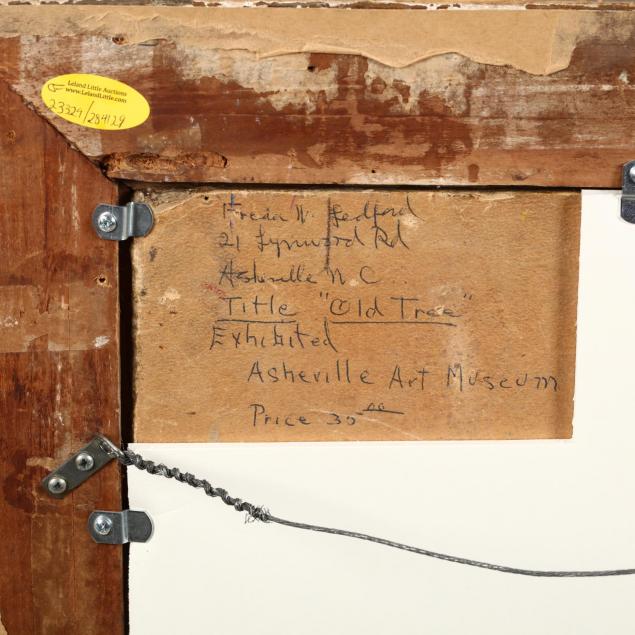 Leland Little Auctions
www.LelandLittle.com
23324/284129
Freda W. Ledford
21 Lynwood Rd
Asheville N C.
Title "Old Tree"
Exhibited
Asheville Art Museum
Price 30 00